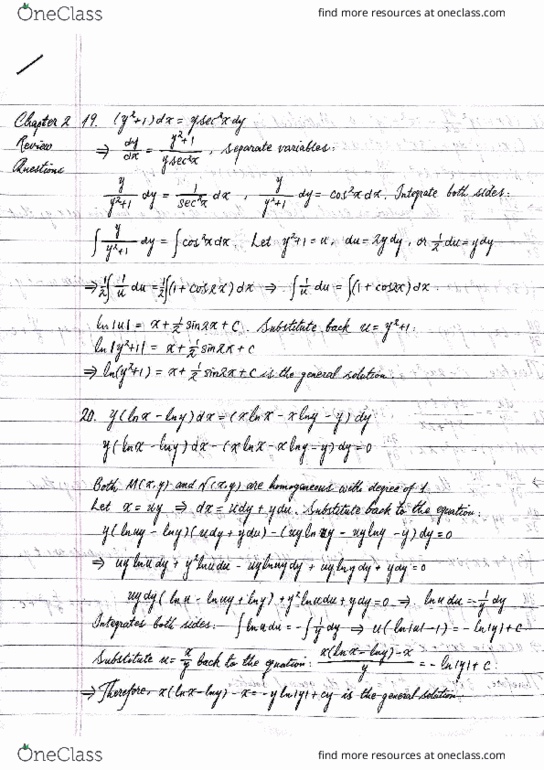 OneClass
find more resources at oneclass.com
Chapter 2 Review Questions
19. (y²+1)dx = y sec²x dy
⇒ dy/dx = (y²+1)/(y sec²x), separate variables:
y/(y²+1) dy = 1/sec²x dx, y/(y²+1) dy = cos²x dx. Integrate both sides:
∫ y/(y²+1) dy = ∫cos²x dx. Let y²+1=u, du=2ydy, or ½du=ydy
⇒ ½∫ 1/u du = ½∫(1+cos2x)dx ⇒ ∫ 1/u du = ∫(1+cos2x)dx.
ln|u| = x+½sin2x+C. Substitute back u=y²+1:
ln|y²+1| = x+½sin2x+C
⇒ ln(y²+1) = x+½sin2x+C is the general solution.
20. y(lnx-lny)dx = (xlnx-xlny-y)dy
y(lnx-lny)dx-(xlnx-xlny-y)dy=0
Both M(x,y) and N(x,y) are homogeneous with degree of 1.
Let x=uy ⇒ dx=udy+ydu. Substitute back to the equation:
y(lnuy-lny)(udy+ydu)-(uylnuy-uylny-y)dy=0
⇒ uylnudy+y²lnudu-uylnuydy+uylnydy+ydy=0
uydy(lnu-lnuy+lny)+y²lnudu+ydy=0 ⇒ lnudu=-1/y dy
Integrates both sides: ∫lnudu=-∫1/y dy ⇒ u(ln|u|-1)=-ln|y|+C
Substitute u=x/y back to the equation: (x(lnx-lny)-x)/y = -ln|y|+C
⇒ Therefore, x(lnx-lny)-x=-yln|y|+cy is the general solution.
OneClass
find more resources at oneclass.com